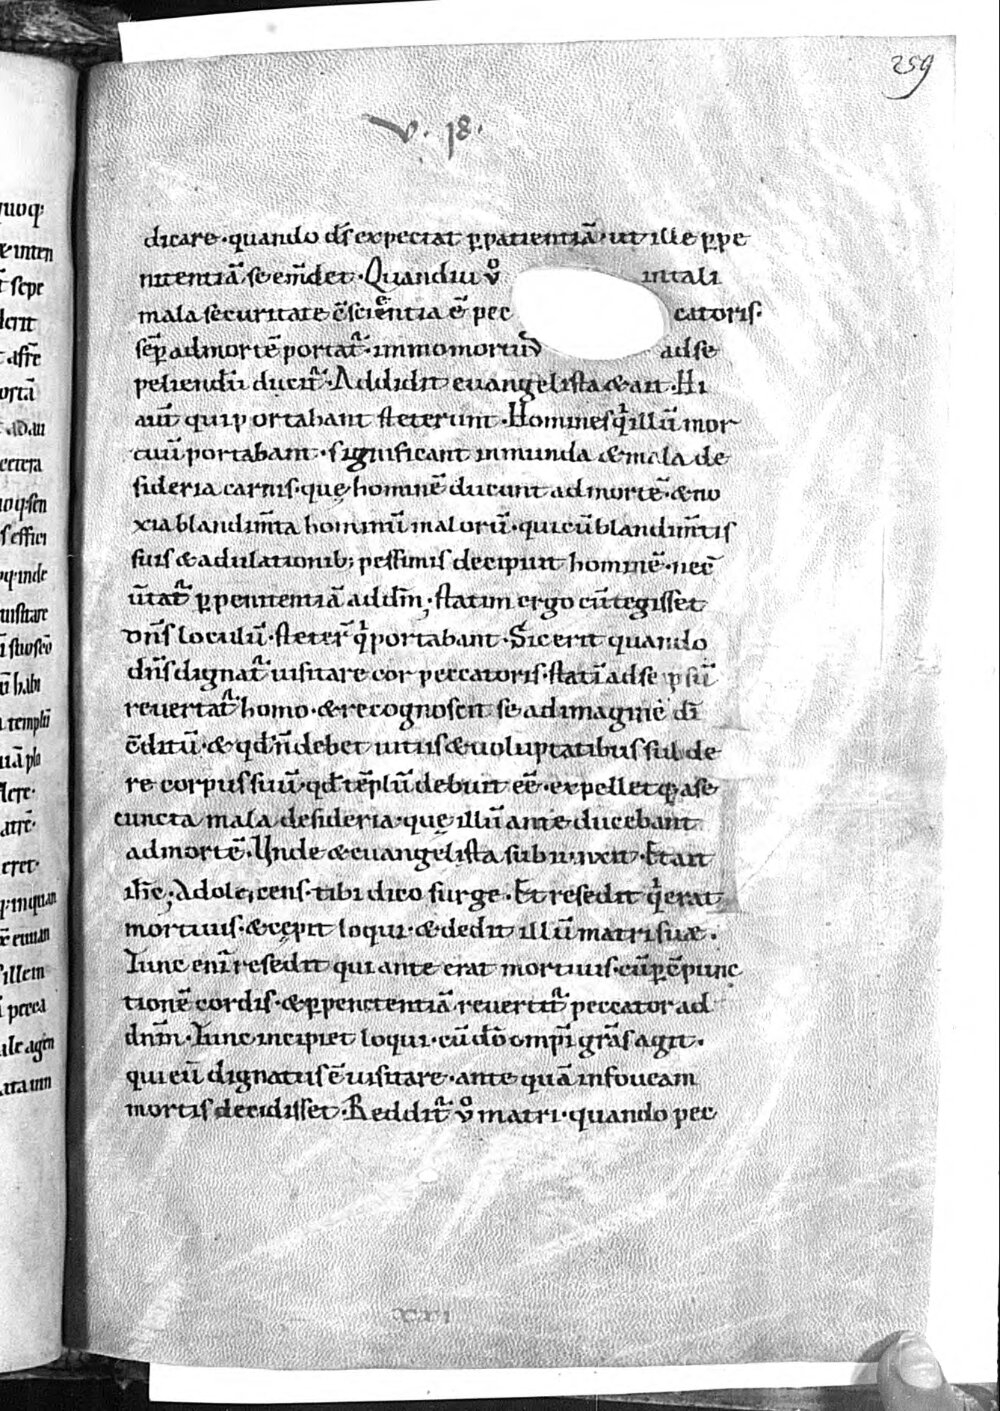 259
v. 18.
dicare · quando d̄s expectat p̱patientiā · ut ille p̱pe
nitentiā se em̄det · Quandiu v̊ in tali
mala securitate c̄scientia ē pec catoris ·
sēp ad mortē portat᷑ · immo mortuū ad se
peliendū ducit᷑ · Addidit euangelista & ait · Hi
aūt qui portabant steterunt · Homines q̇ illū mor
tuū portabant · significant inmunda & mala de
sideria carnis · quę hominē ducunt ad mortē · & no
xia blandim̄ta hominū malorū · qui cū blandim̄tis
suis & adulationib; pessimis decipiunt hominē · nec̄
ūtat᷑ p̱ penitentiā ad dn̄m; statim ergo cū tegisset
dn̄s loculū · steter̄ q̇ portabant · Sic erit quando
dn̄s dignat᷑ uisitare cor peccatoris · statī ad se ipsū
reuertat᷑ homo · & recognoscit se ad imaginē dī
c̄ditū · & qd̄ n̄ debet uitiis & uoluptatibus sub de
re corpus suū · qd̄ tēplū dī debuit eē · expellet q; a se
cuncta mala desideria · quę illū ante ducebant
ad mortē · Unde & euangelista subiunxit · Et ait
ih̄c; Adolescens · tibi dico surge · Et resedit q̇ erat
mortuus · & cępit loqui · & dedit illū matri suæ .
Tunc enī resedit qui ante erat mortuus · cū p̱ c̄punc
tionē cordis · & p̱ penitentiā reuertit᷑ peccator ad
dn̄m · Tunc incipiet loqui · cū dō omp̄i grās agit .
qui eū dignatus ē uisitare · ante quā in foueam
mortis decidisset · Reddit᷑ v̊ matri · quando pec
xxvi
quoq;
& inten
sepe
afr̄e
ectera
s effici
uisitare
ī suo seō
habi
templū
ā pla
eret ·
illem
pecca
ile agen